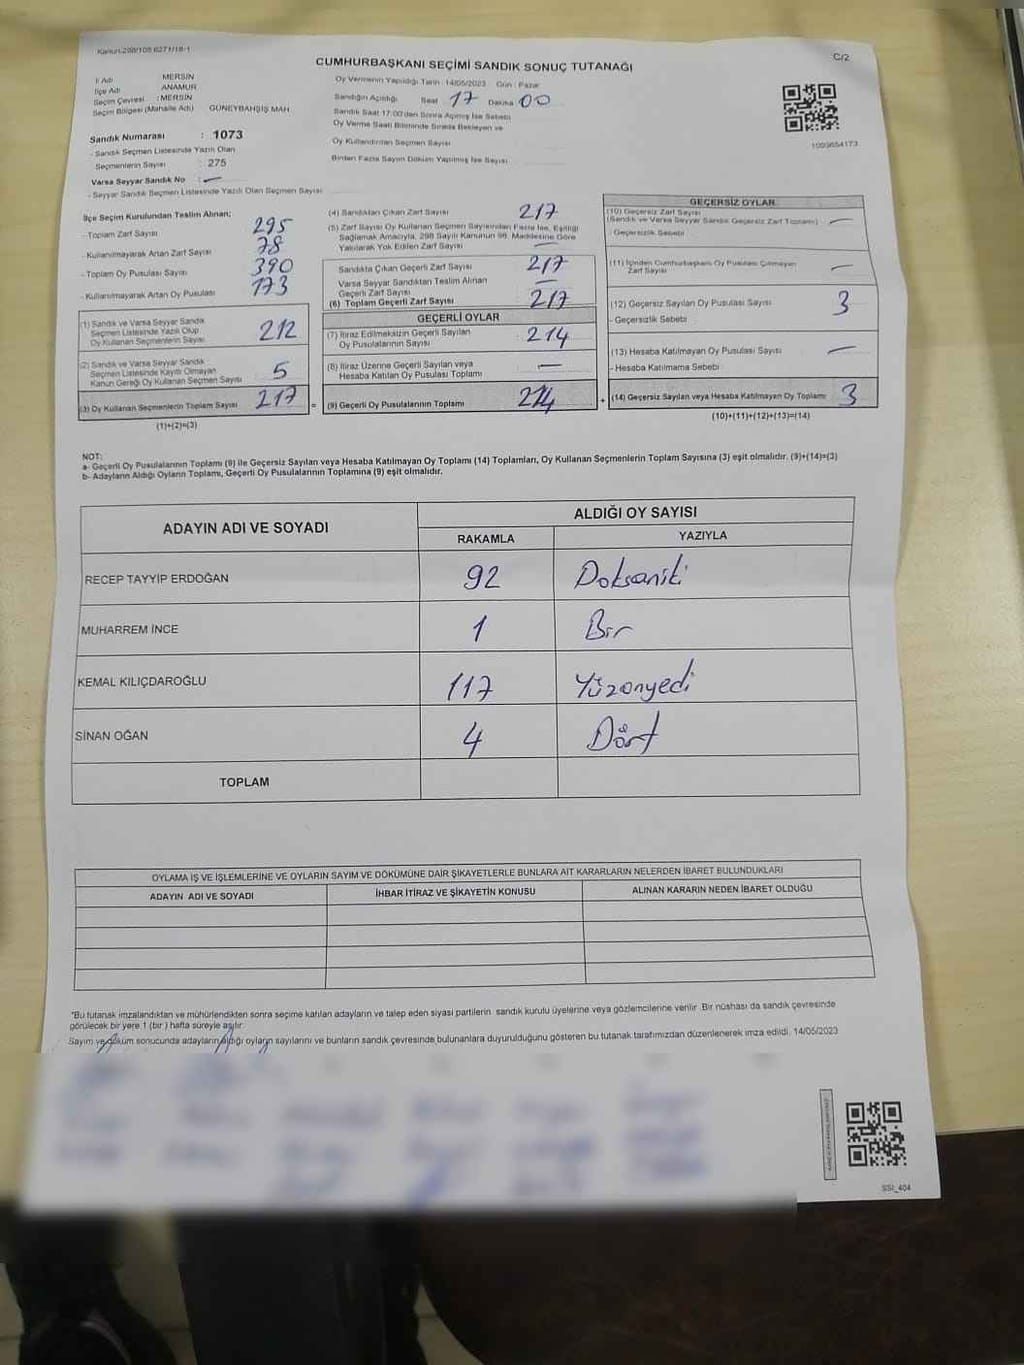 Kanun 298/105 6271/18-1
C/2
CUMHURBAŞKANI SEÇİMİ SANDIK SONUÇ TUTANAĞI
İl Adı MERSİN
İlçe Adı ANAMUR
Seçim Çevresi : MERSİN
Seçim Bölgesi (Mahalle Adı) GÜNEYBAHŞİŞ MAH
Sandık Numarası : 1073
- Sandık Seçmen Listesinde Yazılı Olan
Seçmenlerin Sayısı : 275
Varsa Seyyar Sandık No : —
- Seyyar Sandık Seçmen Listesinde Yazılı Olan Seçmen Sayısı
Oy Vermenin Yapıldığı Tarih : 14/05/2023 Gün : Pazar
Sandığın Açıldığı Saat 17 Dakika 00
Sandık Saat 17:00'den Sonra Açılmış İse Sebebi
Oy Verme Saati Bitiminde Sırada Bekleyen ve
Oy Kullandırılan Seçmen Sayısı
Birden Fazla Sayım Döküm Yapılmış İse Sayısı
İlçe Seçim Kurulundan Teslim Alınan;
- Toplam Zarf Sayısı 295
- Kullanılmayarak Artan Zarf Sayısı 78
- Toplam Oy Pusulası Sayısı 390
- Kullanılmayarak Artan Oy Pusulası 173
(1) Sandık ve Varsa Seyyar Sandık
Seçmen Listesinde Yazılı Olup
Oy Kullanan Seçmenlerin Sayısı 212
(2) Sandık ve Varsa Seyyar Sandık
Seçmen Listesinde Kayıtlı Olmayan
Kanun Gereği Oy Kullanan Seçmen Sayısı 5
(3) Oy Kullanan Seçmenlerin Toplam Sayısı 217
(1)+(2)=(3)
(4) Sandıktan Çıkan Zarf Sayısı 217
(5) Zarf Sayısı Oy Kullanan Seçmen Sayısından Fazla İse, Eşitliği
Sağlamak Amacıyla, 298 Sayılı Kanunun 98. Maddesine Göre
Yakılarak Yok Edilen Zarf Sayısı —
Sandıkta Çıkan Geçerli Zarf Sayısı 217
Varsa Seyyar Sandıktan Teslim Alınan
Geçerli Zarf Sayısı —
(6) Toplam Geçerli Zarf Sayısı 217
GEÇERLİ OYLAR
(7) İtiraz Edilmeksizin Geçerli Sayılan
Oy Pusulasının Sayısı 214
(8) İtiraz Üzerine Geçerli Sayılan veya
Hesaba Katılan Oy Pusulası Toplamı —
= (9) Geçerli Oy Pusulalarının Toplamı 214
1093654173
GEÇERSİZ OYLAR
(10) Geçersiz Zarf Sayısı
(Sandık ve Varsa Seyyar Sandık Geçersiz Zarf Toplamı) —
- Geçersizlik Sebebi
(11) İçinden Cumhurbaşkanı Oy Pusulası Çıkmayan
Zarf Sayısı —
(12) Geçersiz Sayılan Oy Pusulası Sayısı 3
- Geçersizlik Sebebi
(13) Hesaba Katılmayan Oy Pusulası Sayısı —
- Hesaba Katılmama Sebebi
+ (14) Geçersiz Sayılan veya Hesaba Katılmayan Oy Toplamı 3
(10)+(11)+(12)+(13)=(14)
NOT:
a- Geçerli Oy Pusulalarının Toplamı (9) ile Geçersiz Sayılan veya Hesaba Katılmayan Oy Toplamı (14) Toplamları, Oy Kullanan Seçmenlerin Toplam Sayısına (3) eşit olmalıdır. (9)+(14)=(3)
b- Adayların Aldığı Oyların Toplamı, Geçerli Oy Pusulalarının Toplamına (9) eşit olmalıdır.
ADAYIN ADI VE SOYADI
ALDIĞI OY SAYISI
RAKAMLA YAZIYLA
RECEP TAYYİP ERDOĞAN 92 Doksaniki
MUHARREM İNCE 1 Bir
KEMAL KILIÇDAROĞLU 117 Yüzonyedi
SİNAN OĞAN 4 Dört
TOPLAM
OYLAMA İŞ VE İŞLEMLERİNE VE OYLARIN SAYIM VE DÖKÜMÜNE DAİR ŞİKAYETLERLE BUNLARA AİT KARARLARIN NELERDEN İBARET BULUNDUKLARI
ADAYIN ADI VE SOYADI İHBAR İTİRAZ VE ŞİKAYETİN KONUSU ALINAN KARARIN NEDEN İBARET OLDUĞU
*Bu tutanak imzalandıktan ve mühürlendikten sonra seçime katılan adayların ve talep eden siyasi partilerin sandık kurulu üyelerine veya gözlemcilerine verilir. Bir nüshası da sandık çevresinde
görülecek bir yere 1 (bir ) hafta süreyle asılır.
Sayım ve döküm sonucunda adayların aldığı oyların sayılarını ve bunların sandık çevresinde bulunanlara duyurulduğunu gösteren bu tutanak tarafımızdan düzenlenerek imza edildi. 14/05/2023
SSI_404